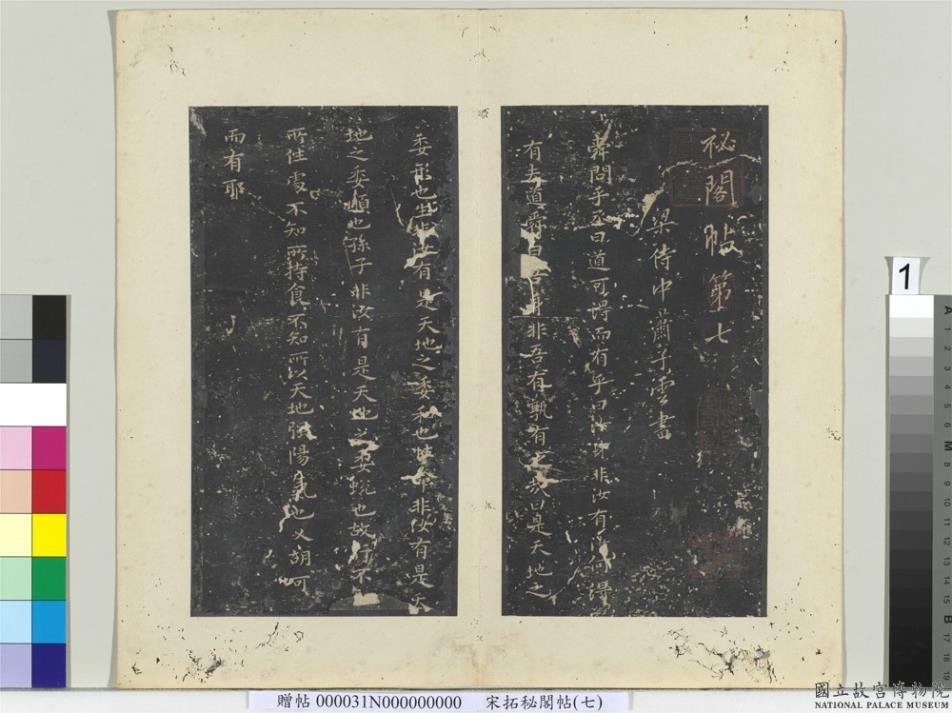 祕閣帖第七
梁侍中蕭子雲書
舜問乎丞曰道可得而有乎曰汝身非汝有何得
有夫道舜曰吾身非吾有孰有之哉曰是天地之
委形也生非汝有是天地之委和也性命非汝有是天
地之委順也孫子非汝有是天地之委蛻也故行不
所住處不知所持食不知所以天地強陽氣也又胡可
而有耶
1
贈帖 000031N000000000 宋拓秘閣帖(七)
國立故宮博物院
NATIONAL PALACE MUSEUM